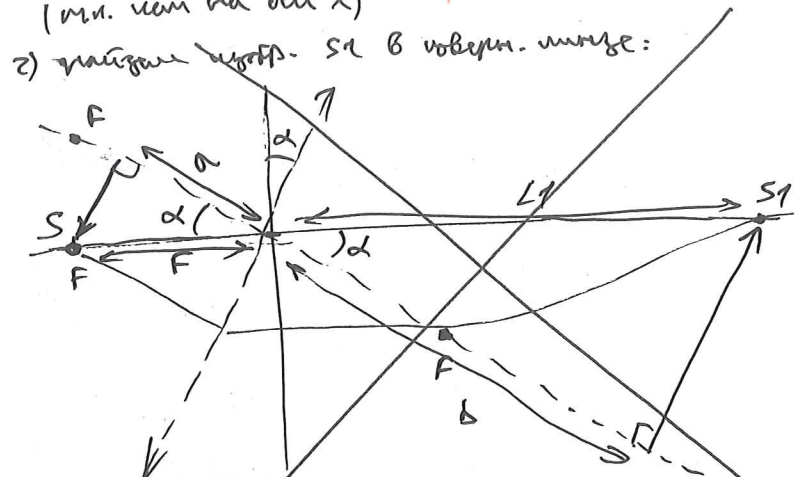 (т.к. изм на оси x)
2) найдем изобр. S1 в поверн. линзе:
F
a
α
α
L1
S1
S
F
F
α
F
b